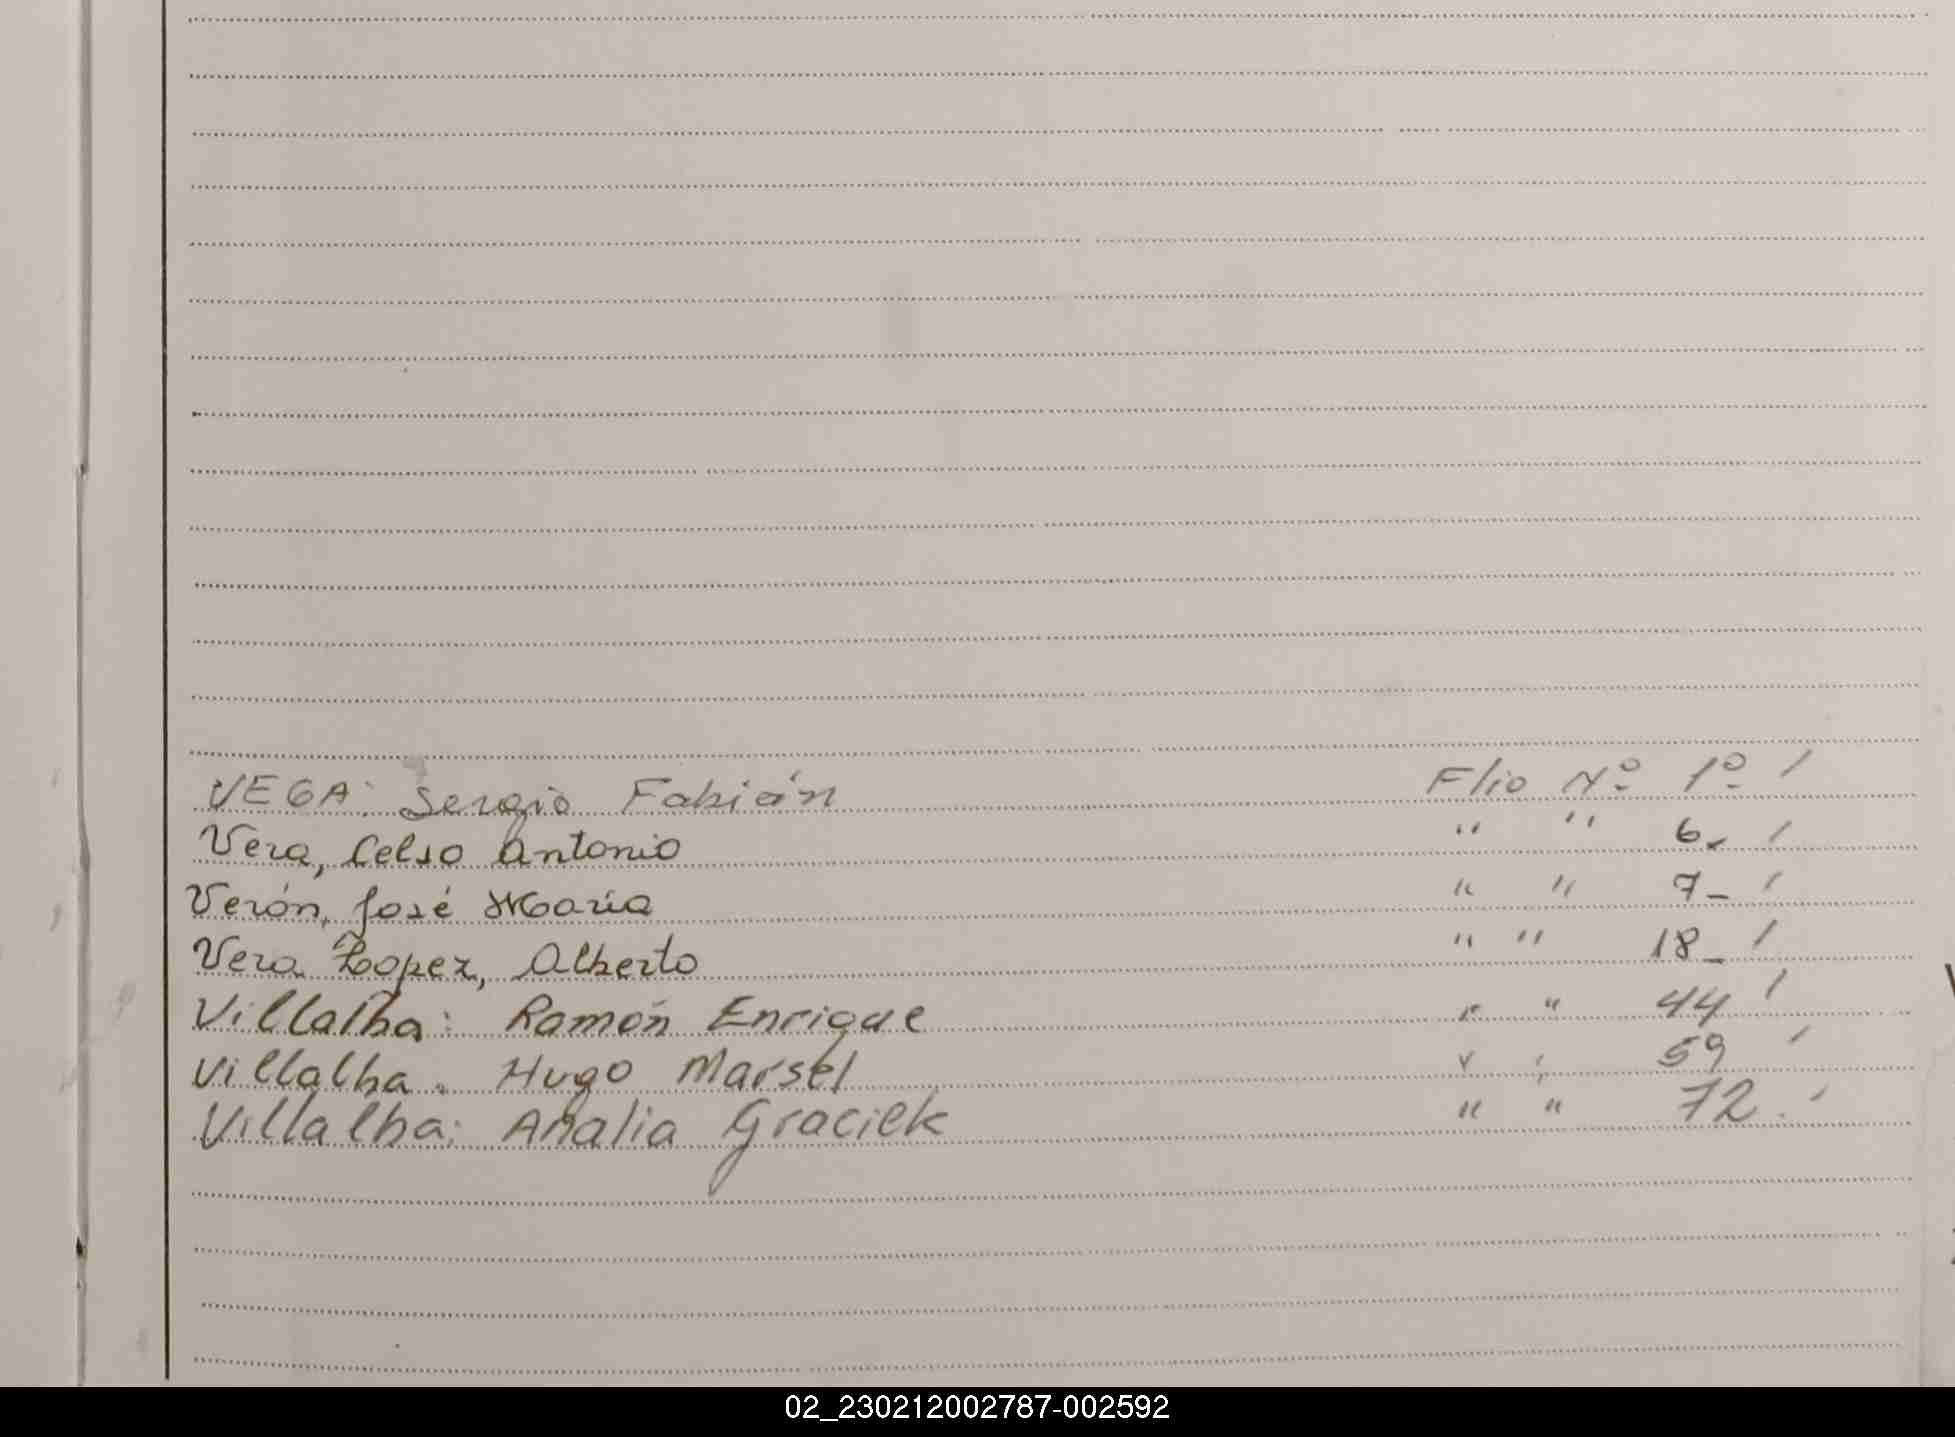 VEGA: Sergio Fabián Flio Nº 1º /
Vera, Celso Antonio " " 6- /
Verón, José María " " 7- /
Vera Lopez, Alberto " " 18- /
Villalba: Ramón Enrique " " 44 /
Villalba. Hugo Marsel " " 59 /
Villalba: Analia Graciela " " 72. /
02_230212002787-002592